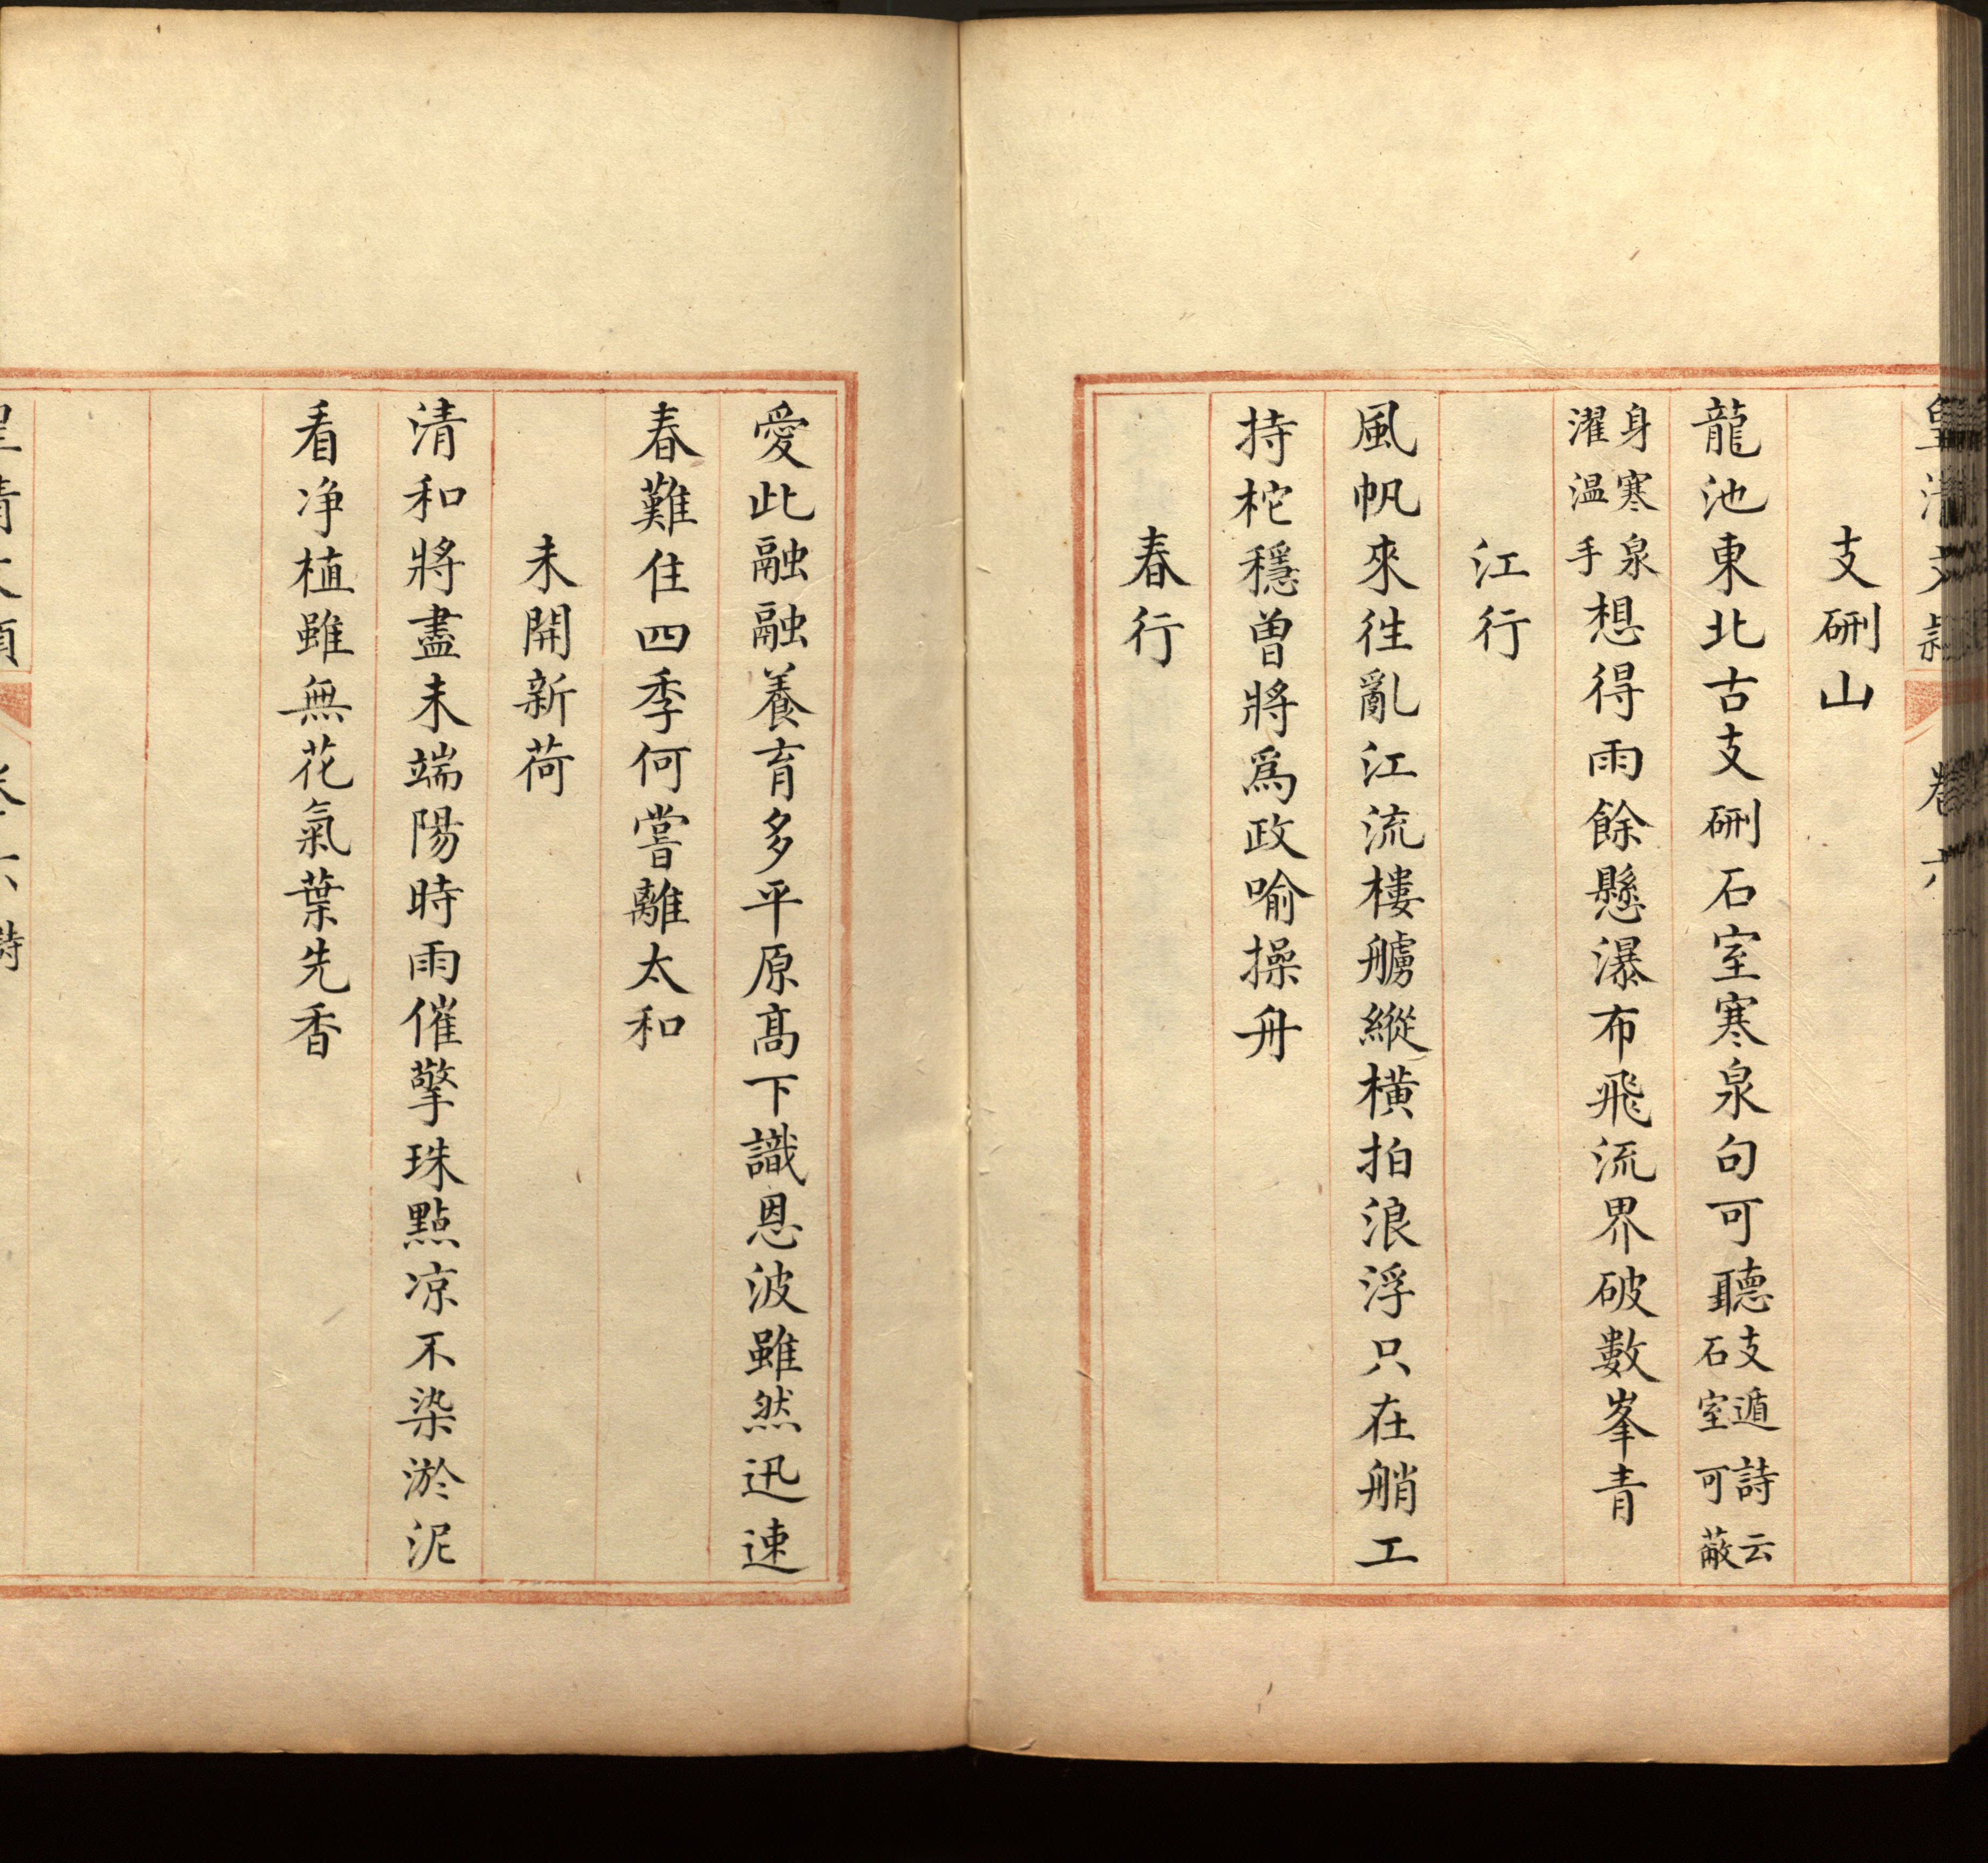 皇清文穎 卷六
支硎山
龍池東北古支硎石室寒泉句可聽支遁詩云石室可蔽
身寒泉濯温手想得雨餘懸瀑布飛流界破數峯青
江行
風帆來徃亂江流樓艣縱橫拍浪浮只在艄工
持柁穩曽將爲政喻操舟
春行
愛此融融養育多平原髙下識恩波雖然迅速
春難住四季何嘗離太和
未開新荷
清和將盡未端陽時雨催擎珠點凉不染淤泥
看净植雖無花氣葉先香
皇清文穎 卷六 詩